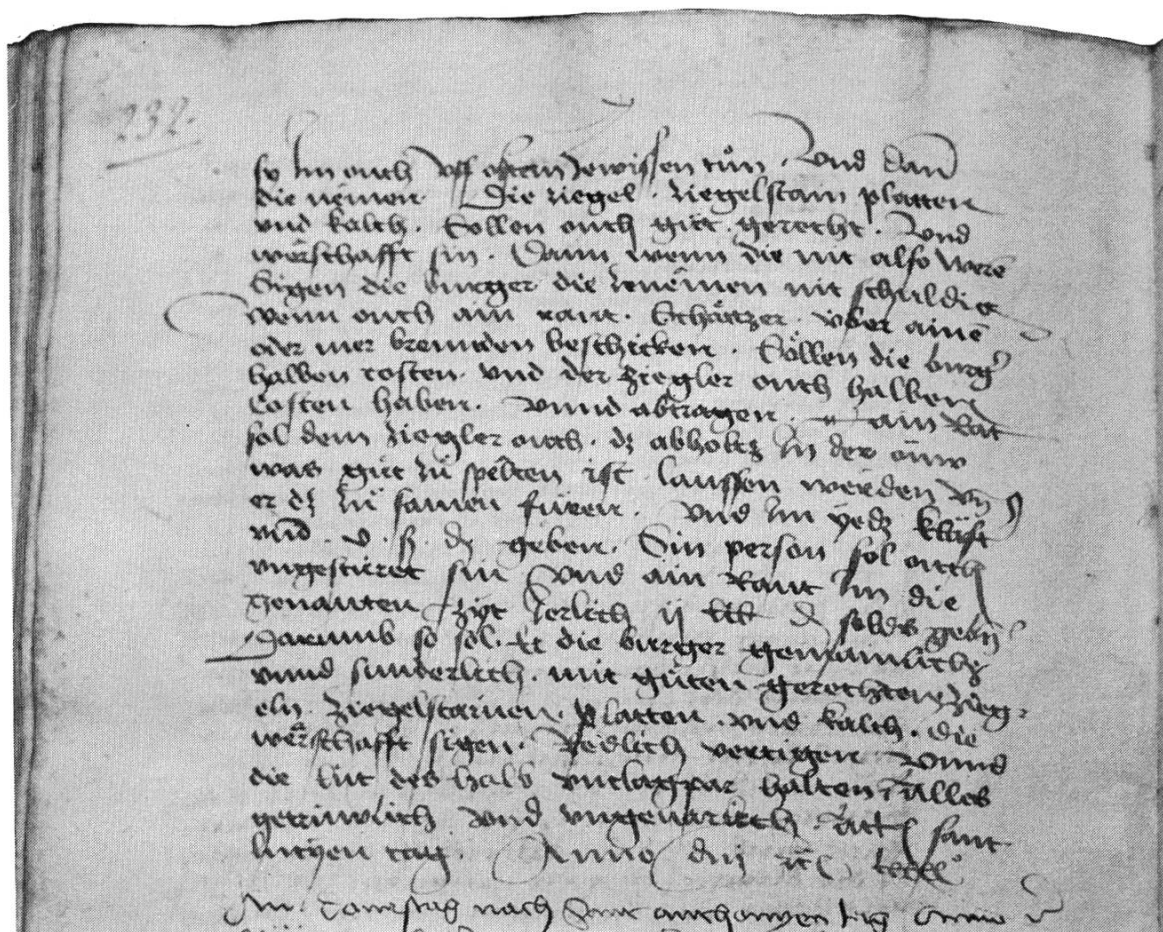 232.
so im ouch uff offem gewissen tůn. Und dann
die nemen. Die ziegel. ziegelstain platten
und kalch. Söllen ouch gůt. gerecht. Und
werschafft sin. Dann wenn die nit also were
Sigen die burger die zenemen nit schuldig
wenn ouch ain raut. Schätzer. über ainē
oder mer bremden beschicken. Söllen die burg
halben costen. und der Ziegler ouch halben
Costen haben. Unnd abtragen. ain Rat
sol dem ziegler ouch. dz abholtz In der ouw
was gůt zů spelten ist laussen werden
er dz zů samen fůren. Und im yedz klaft
umb. v. ß. d. geben. Sin person sol ouch
ungestüret sin Und ain Raut Im die
genanten Zyt Jerlich ij d soldes geben
Darumb so sol. Er die burger gemainlich
unnd sunderlich. mit gůten gerechten Zieg-
eln. Ziegelstainen. platten. und kalch. die
werschafft sigen. Redlich vertigen Unnd
die lüt des halb unclagpar halten alles
getrüwlich und ungevarlich. sant
lucyen tag Anno dnj
An. Donrstag nach Sant anthonyen tag Anno